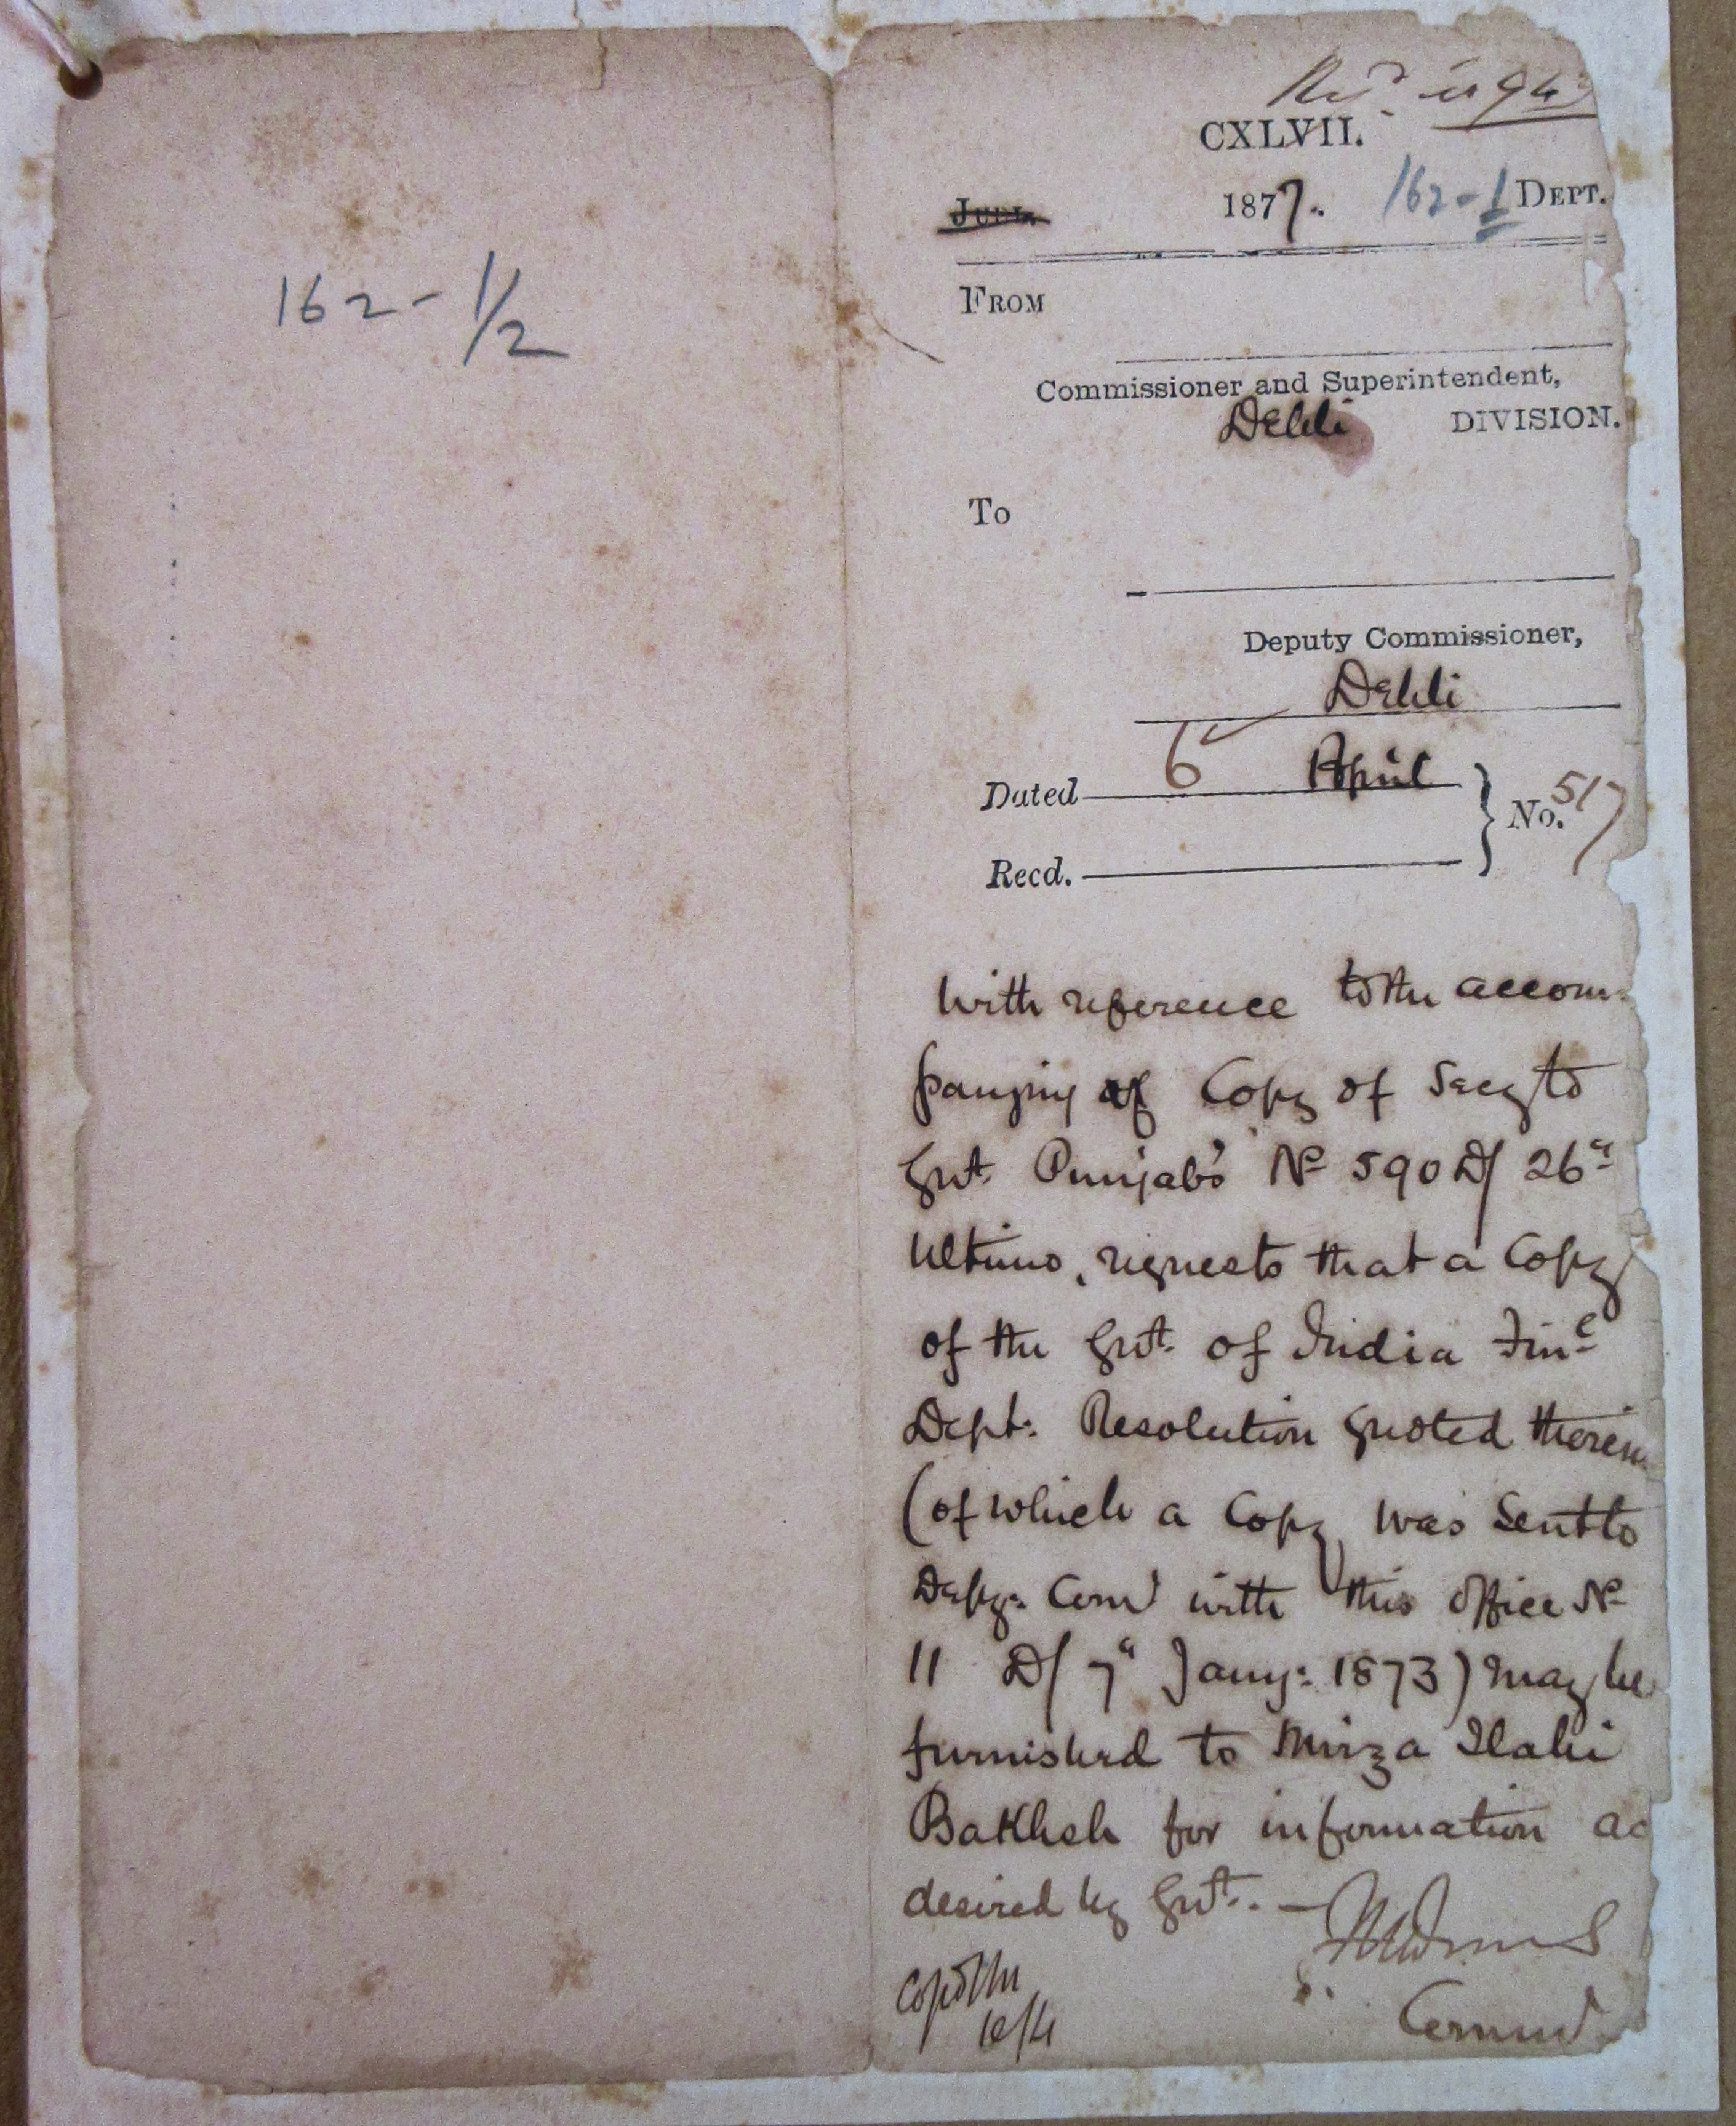 162-1/2
CXLVII.
187 7. 162-1 DEPT.
FROM
Commissioner and Superintendent,
Dehli DIVISION.
To
Deputy Commissioner,
Dehli
Dated 6 April
No. 517
Recd.
With reference to the accom-
panying Copy of Secy to
Govt. Punjab's No 590 D/ 26th
Ultimo, requests that a Copy
of the Govt. of India Finc
Dept: Resolution quoted therein
(of which a Copy was sent to
Depy: Comr with this office No
11 D/ 7th Jany: 1873) may be
furnished to Mirza Ilahi
Bakhsh for information as
desired by Govt. —
Commr